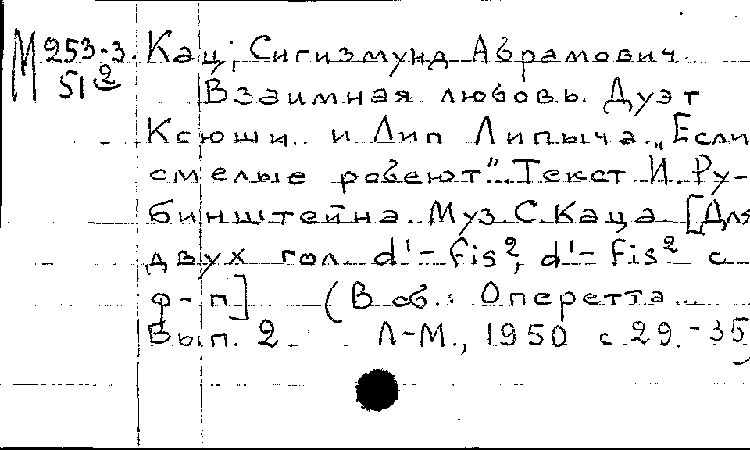 М 253-3. Кац, Сигизмунд Абрамович.
512 Взаимная любовь. Дуэт
Ксюши и Лип Липыча „Если
смелые робеют". Текст И. Ру-
бинштейна. Муз. С. Каца. [Для
двух гол. d¹-fis², d¹-fis² с
ф-п] (В сб.: Оперетта.
Вып. 2. Л-М., 1950 с 29-35)